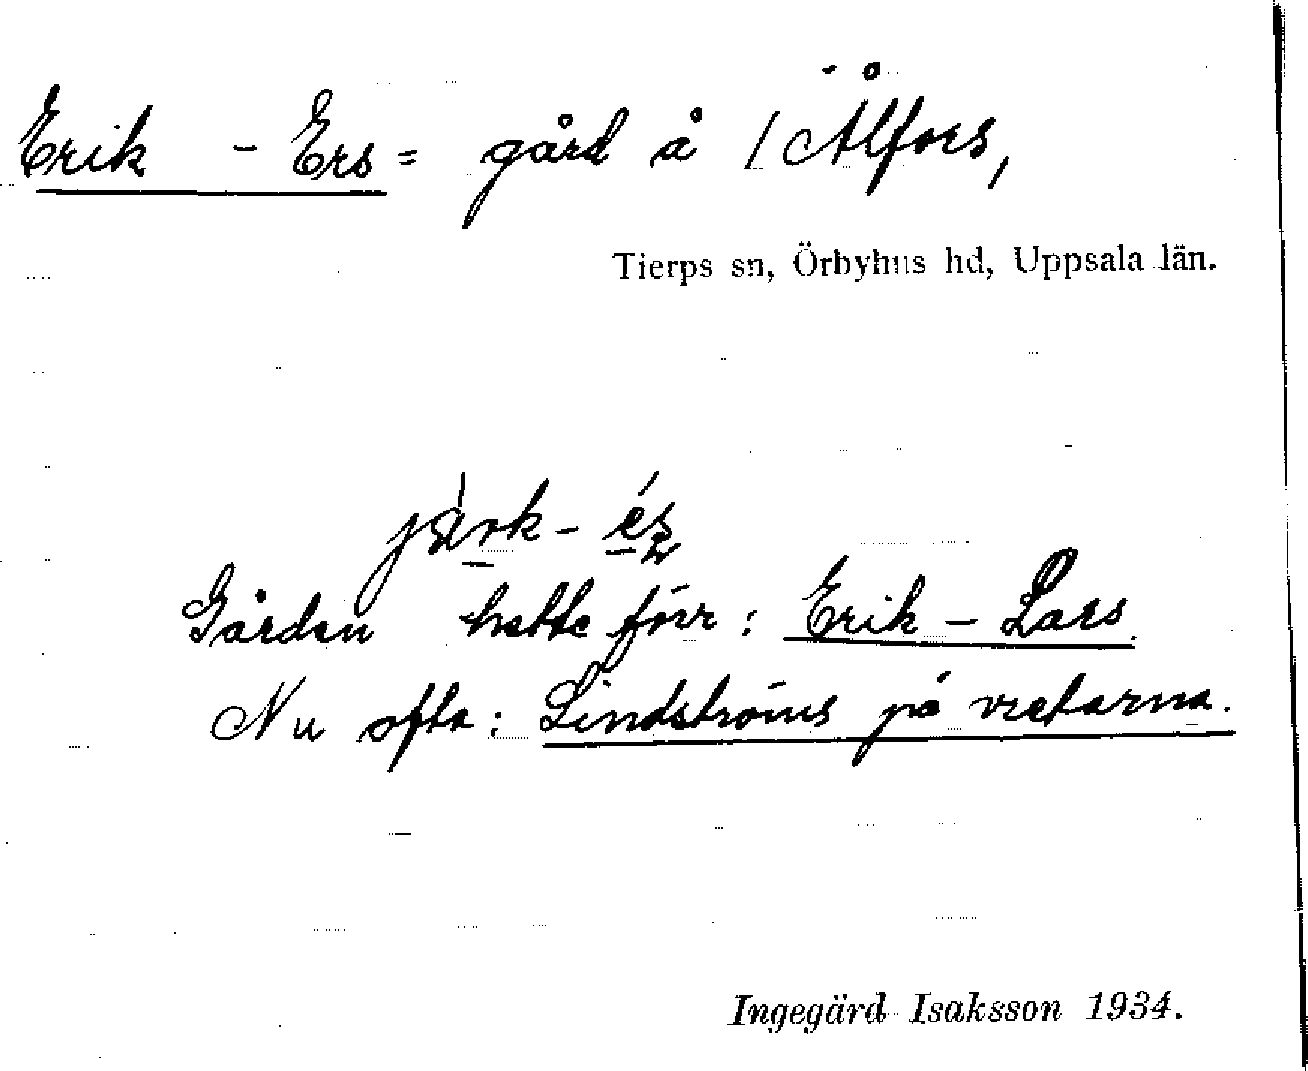 Erik - Ers = gård å / Ålfors,
Tierps sn, Örbyhus hd, Uppsala län.
järk - és
Gården hette förr: Erik - Lars.
Nu ofta: Lindströms på vretarna.
Ingegärd Isaksson 1934.